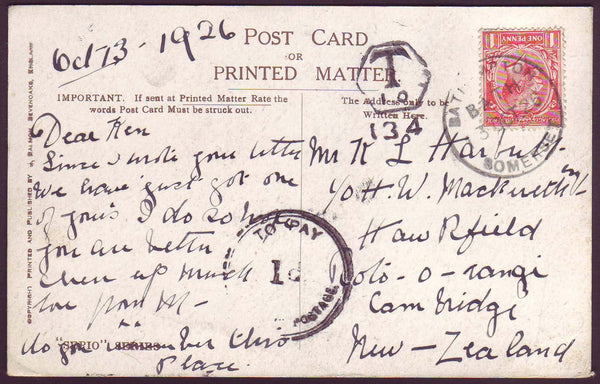 Oct 3 - 1926
POST CARD
OR
PRINTED MATTER.
IMPORTANT. If sent at Printed Matter Rate the
words Post Card Must be struck out.
The Address only to be
Written Here.
T
10
134
ONE PENNY
BATH
SOMERSET
Dear Ken
Since I wrote your letter
We have just got one
of yours. I do so hope
you are better
Cheer up much
love from M -
do you remember this
place.
"SEPIO" SERIES
TO PAY
1d
POSTAGE
Mr K L
H. W.
Roto - o - rangi
Cambridge
New - Zealand
COPYRIGHT PRINTED AND PUBLISHED BY J. SALMON, SEVENOAKS, ENGLAND